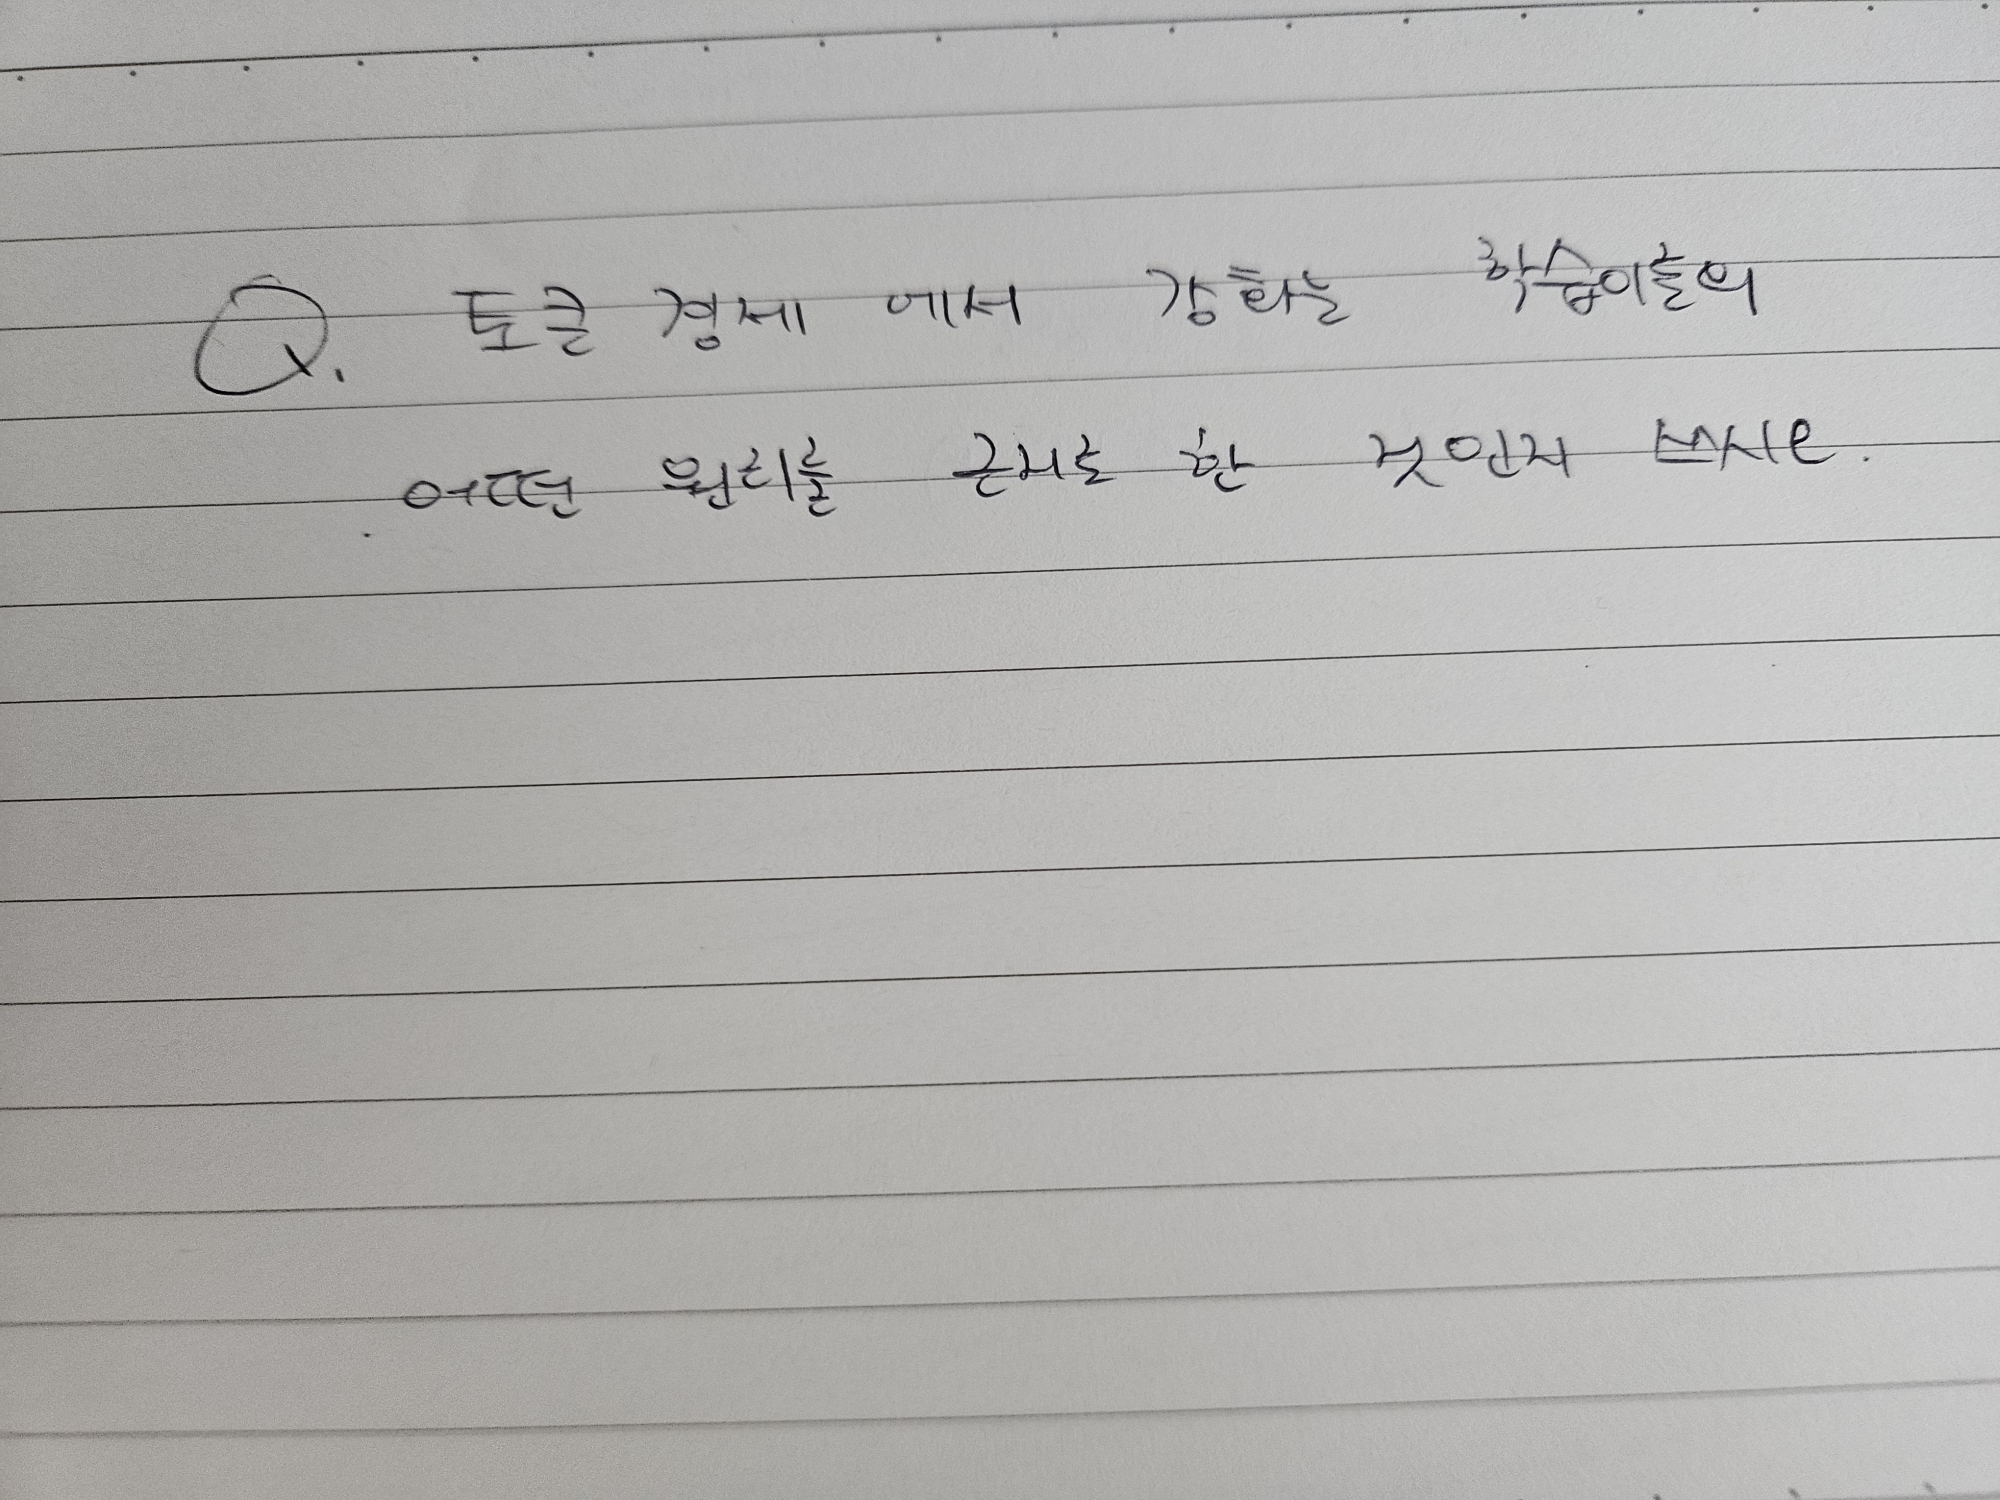 Q. 토큰 경제 에서 강화는 학습이론의
어떤 원리를 근거로 한 것인지 쓰시오.